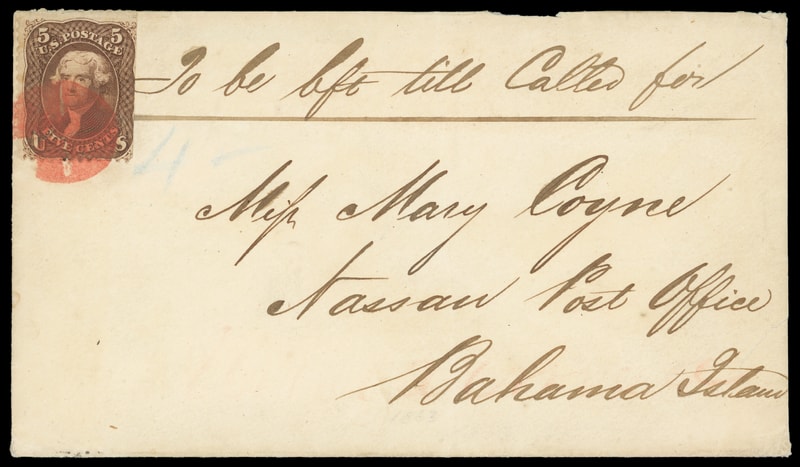 5 U.S. POSTAGE 5
U FIVE CENTS S
To be left till Called for
4-
Miss Mary Coyne
Nassau Post Office
Bahama Island